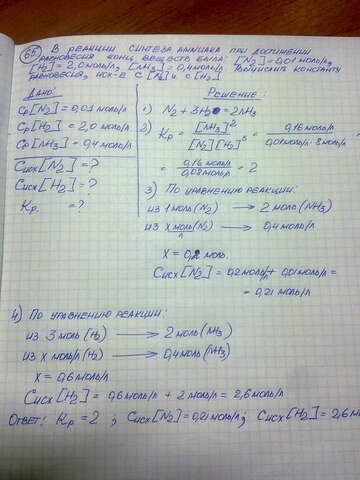 65 В РЕАКЦИИ СИНТЕЗА АММИАКА ПРИ ДОСТИЖЕНИИ
РАВНОВЕСИЯ КОНЦ. ВЕЩЕСТВ БЫЛА: [N2] = 0,01 моль/л,
[H2] = 2,0 моль/л, [NH3] = 0,4 моль/л, ВЫЧИСЛИТЬ КОНСТАНТУ
РАВНОВЕСИЯ, ИСХ-Е С [N2] и С [H2].
ДАНО:
Cр[N2] = 0,01 моль/л
Cр[H2] = 2,0 моль/л
Cр[NH3] = 0,4 моль/л
Cисх[N2] = ?
Cисх[H2] = ?
Kр. = ?
РЕШЕНИЕ:
1) N2 + 3H2 = 2NH3
2) Kр = [NH3]² / [N2][H2]³ = 0,16 моль/л / 0,01 моль/л · 8 моль/л =
= 0,16 моль/л / 0,08 моль/л = 2
3) ПО УРАВНЕНИЮ РЕАКЦИИ:
из 1 моль (N2) → 2 моль (NH3)
из x моль/л (N2) → 0,4 моль/л
x = 0,2 моль.
Cисх [N2] = 0,2 моль/л + 0,01 моль/л =
= 0,21 моль/л
4) ПО УРАВНЕНИЮ РЕАКЦИИ:
из 3 моль (H2) → 2 моль (NH3)
из x моль/л (H2) → 0,4 моль/л (NH3)
x = 0,6 моль/л
Cисх [H2] = 0,6 моль/л + 2 моль/л = 2,6 моль/л
ОТВЕТ: Kр = 2 ; Cисх [N2] = 0,21 моль/л; Cисх [H2] = 2,6 мо